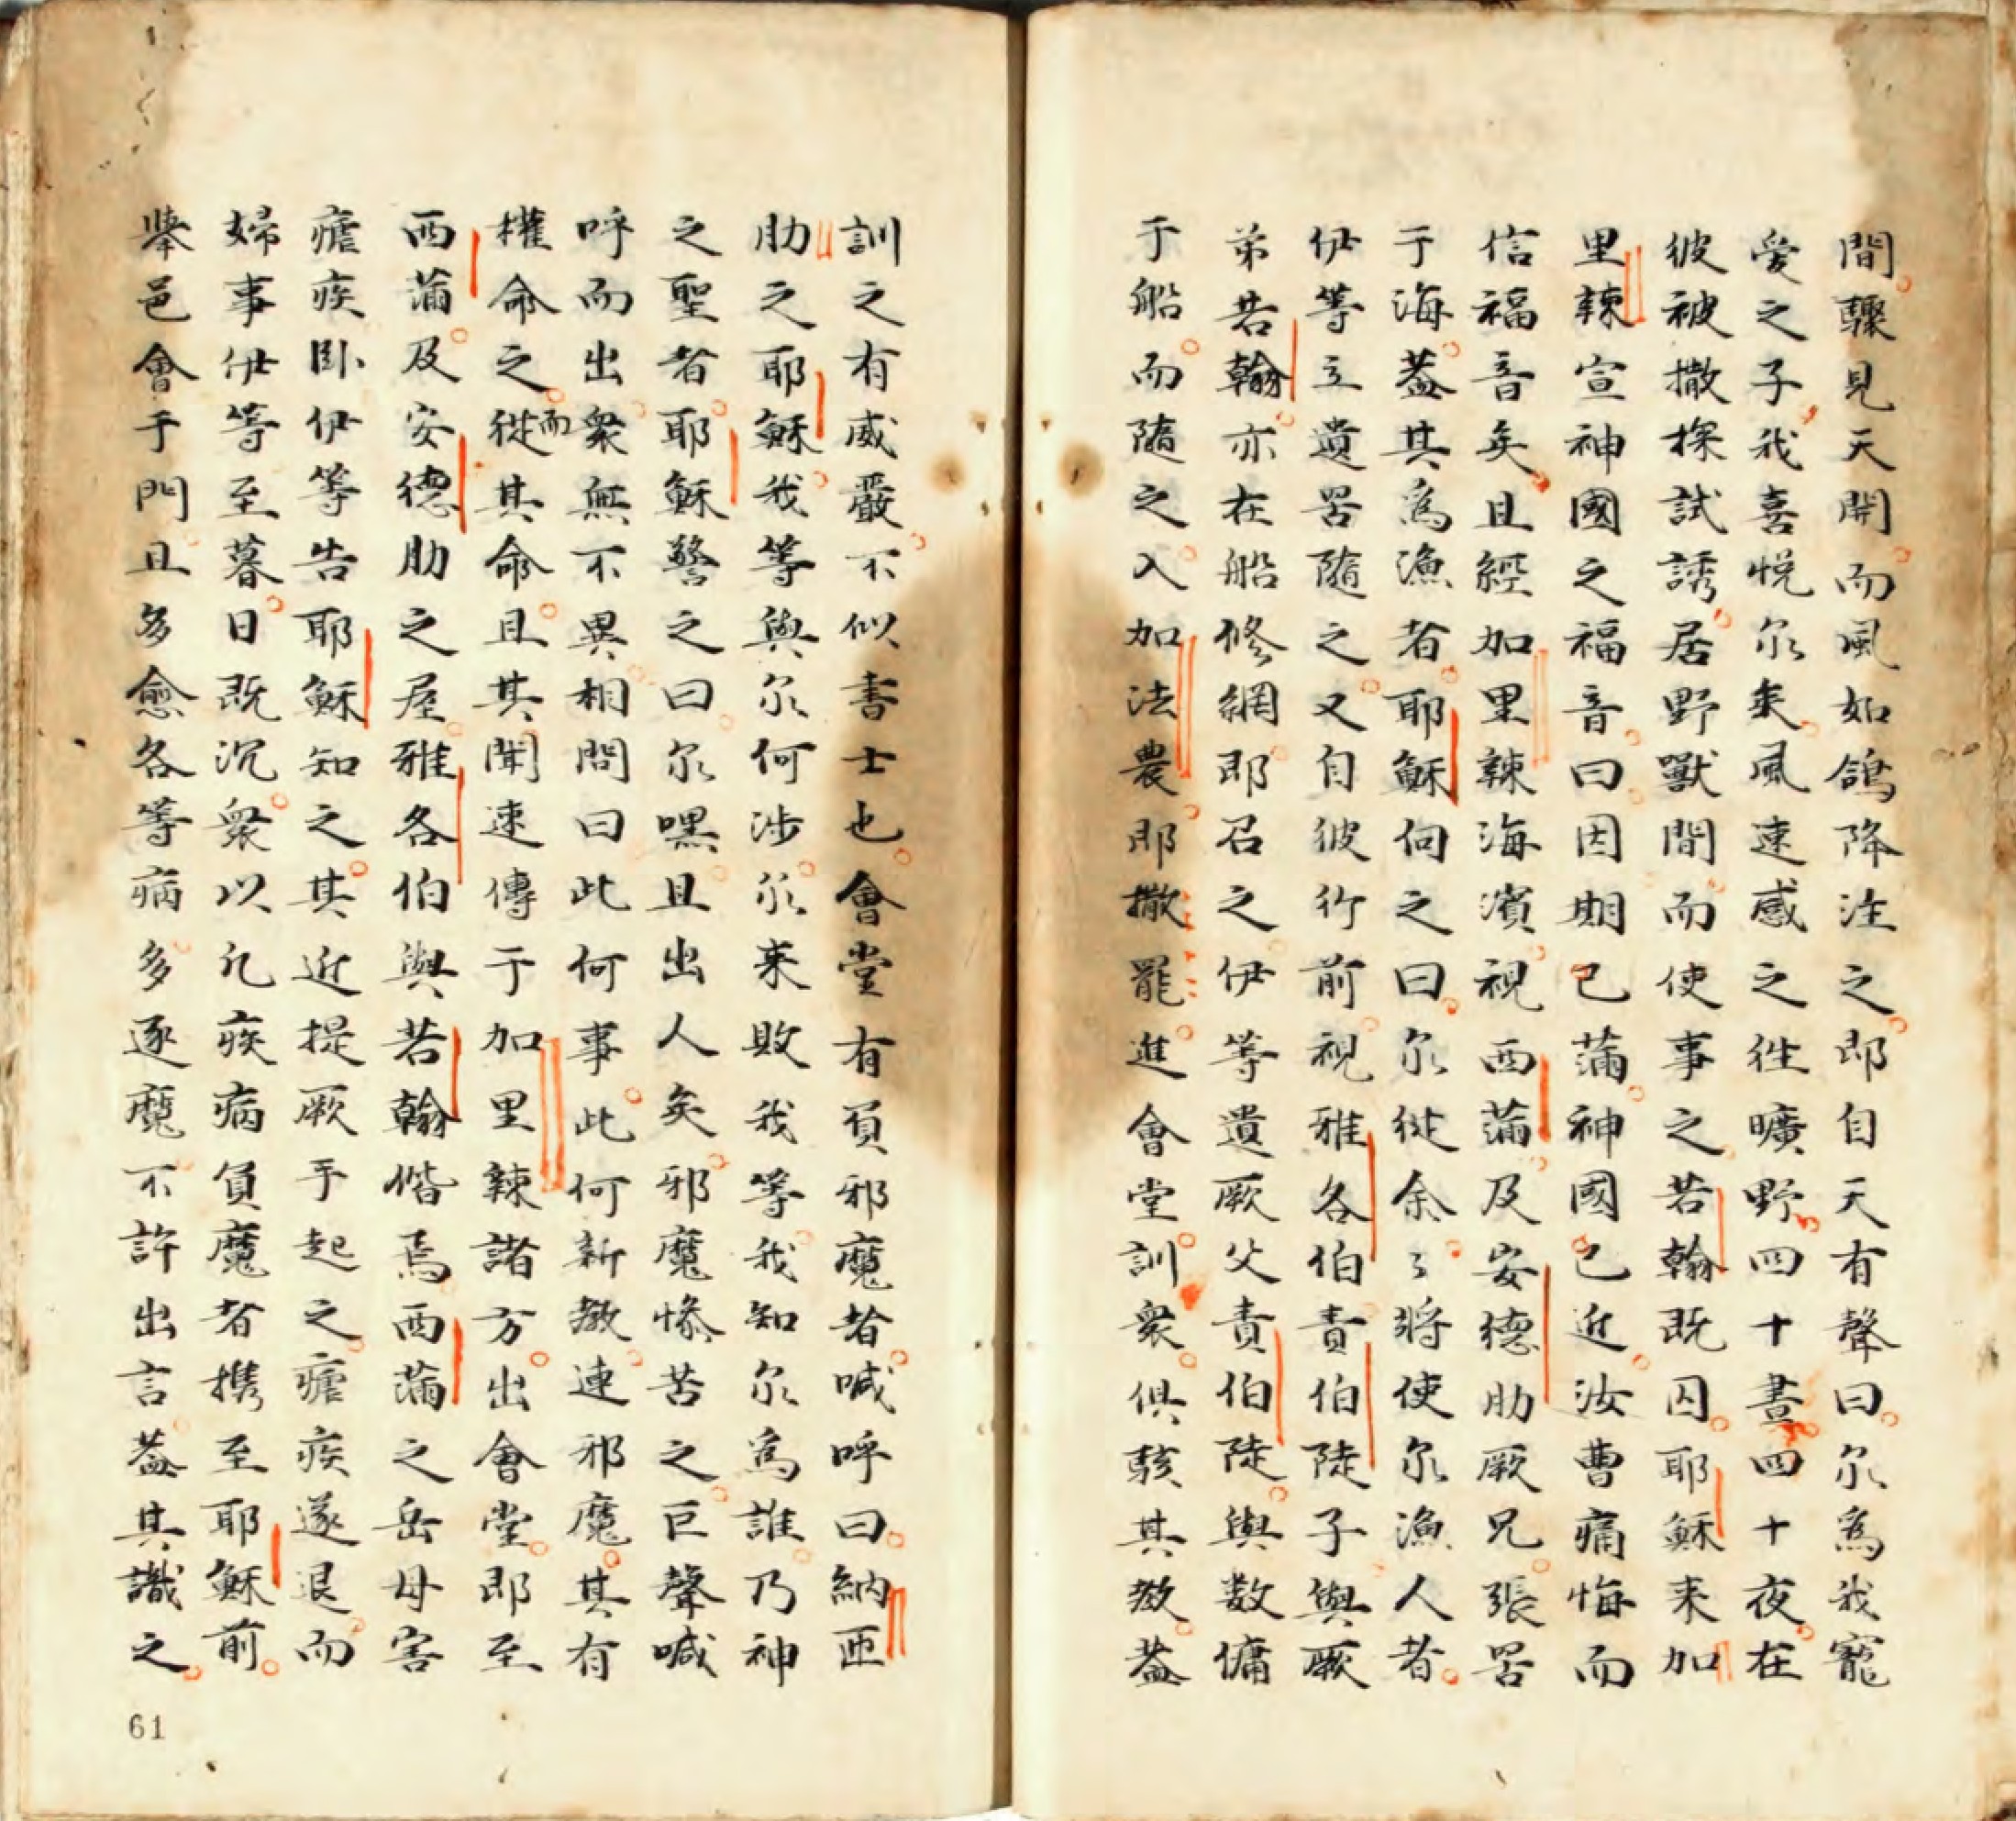 間驟見天開而風如鴿降注之即自天有聲曰尔為我寵
愛之子我喜悅尔矣風速感之徃曠野四十晝四十夜在
彼被撒探試誘居野獸間而使事之若翰既囚耶穌来加
里辣宣神國之福音曰因期已蒲神國已近汝曹痛悔而
信福音矣且經加里辣海濱視西蒲及安德肋厥兄張罟
于海葢其為漁者耶穌向之曰尔従余〻將使尔漁人者
伊等立遺罟隨之又自彼行前視雅各伯責伯陡子與厥
弟若翰亦在船修網即召之伊等遺厥父責伯陡與数傭
于船而隨之入加法農即撒罷進會堂訓衆俱駭其教葢
訓之有威嚴不似書士也會堂有負邪魔者喊呼曰納匝
肋之耶穌我等與尔何涉尔来敗我等我知尔為誰乃神
之聖者耶穌警之曰尔嘿且出人矣邪魔慘苦之巨聲喊
呼而出衆無不異相問曰此何事此何新教連邪魔其有
權命之而従其命且其聞速傳于加里辣諸方出會堂即至
西蒲及安德肋之屋雅各伯與若翰偕焉西蒲之岳母害
瘧疾卧伊等告耶穌知之其近提厥手起之瘧疾遂退而
婦事伊等至暮日既沉衆以凢疾病負魔者携至耶穌前
舉邑會于門且多愈各等病多逐魔不許出言葢其識之
61